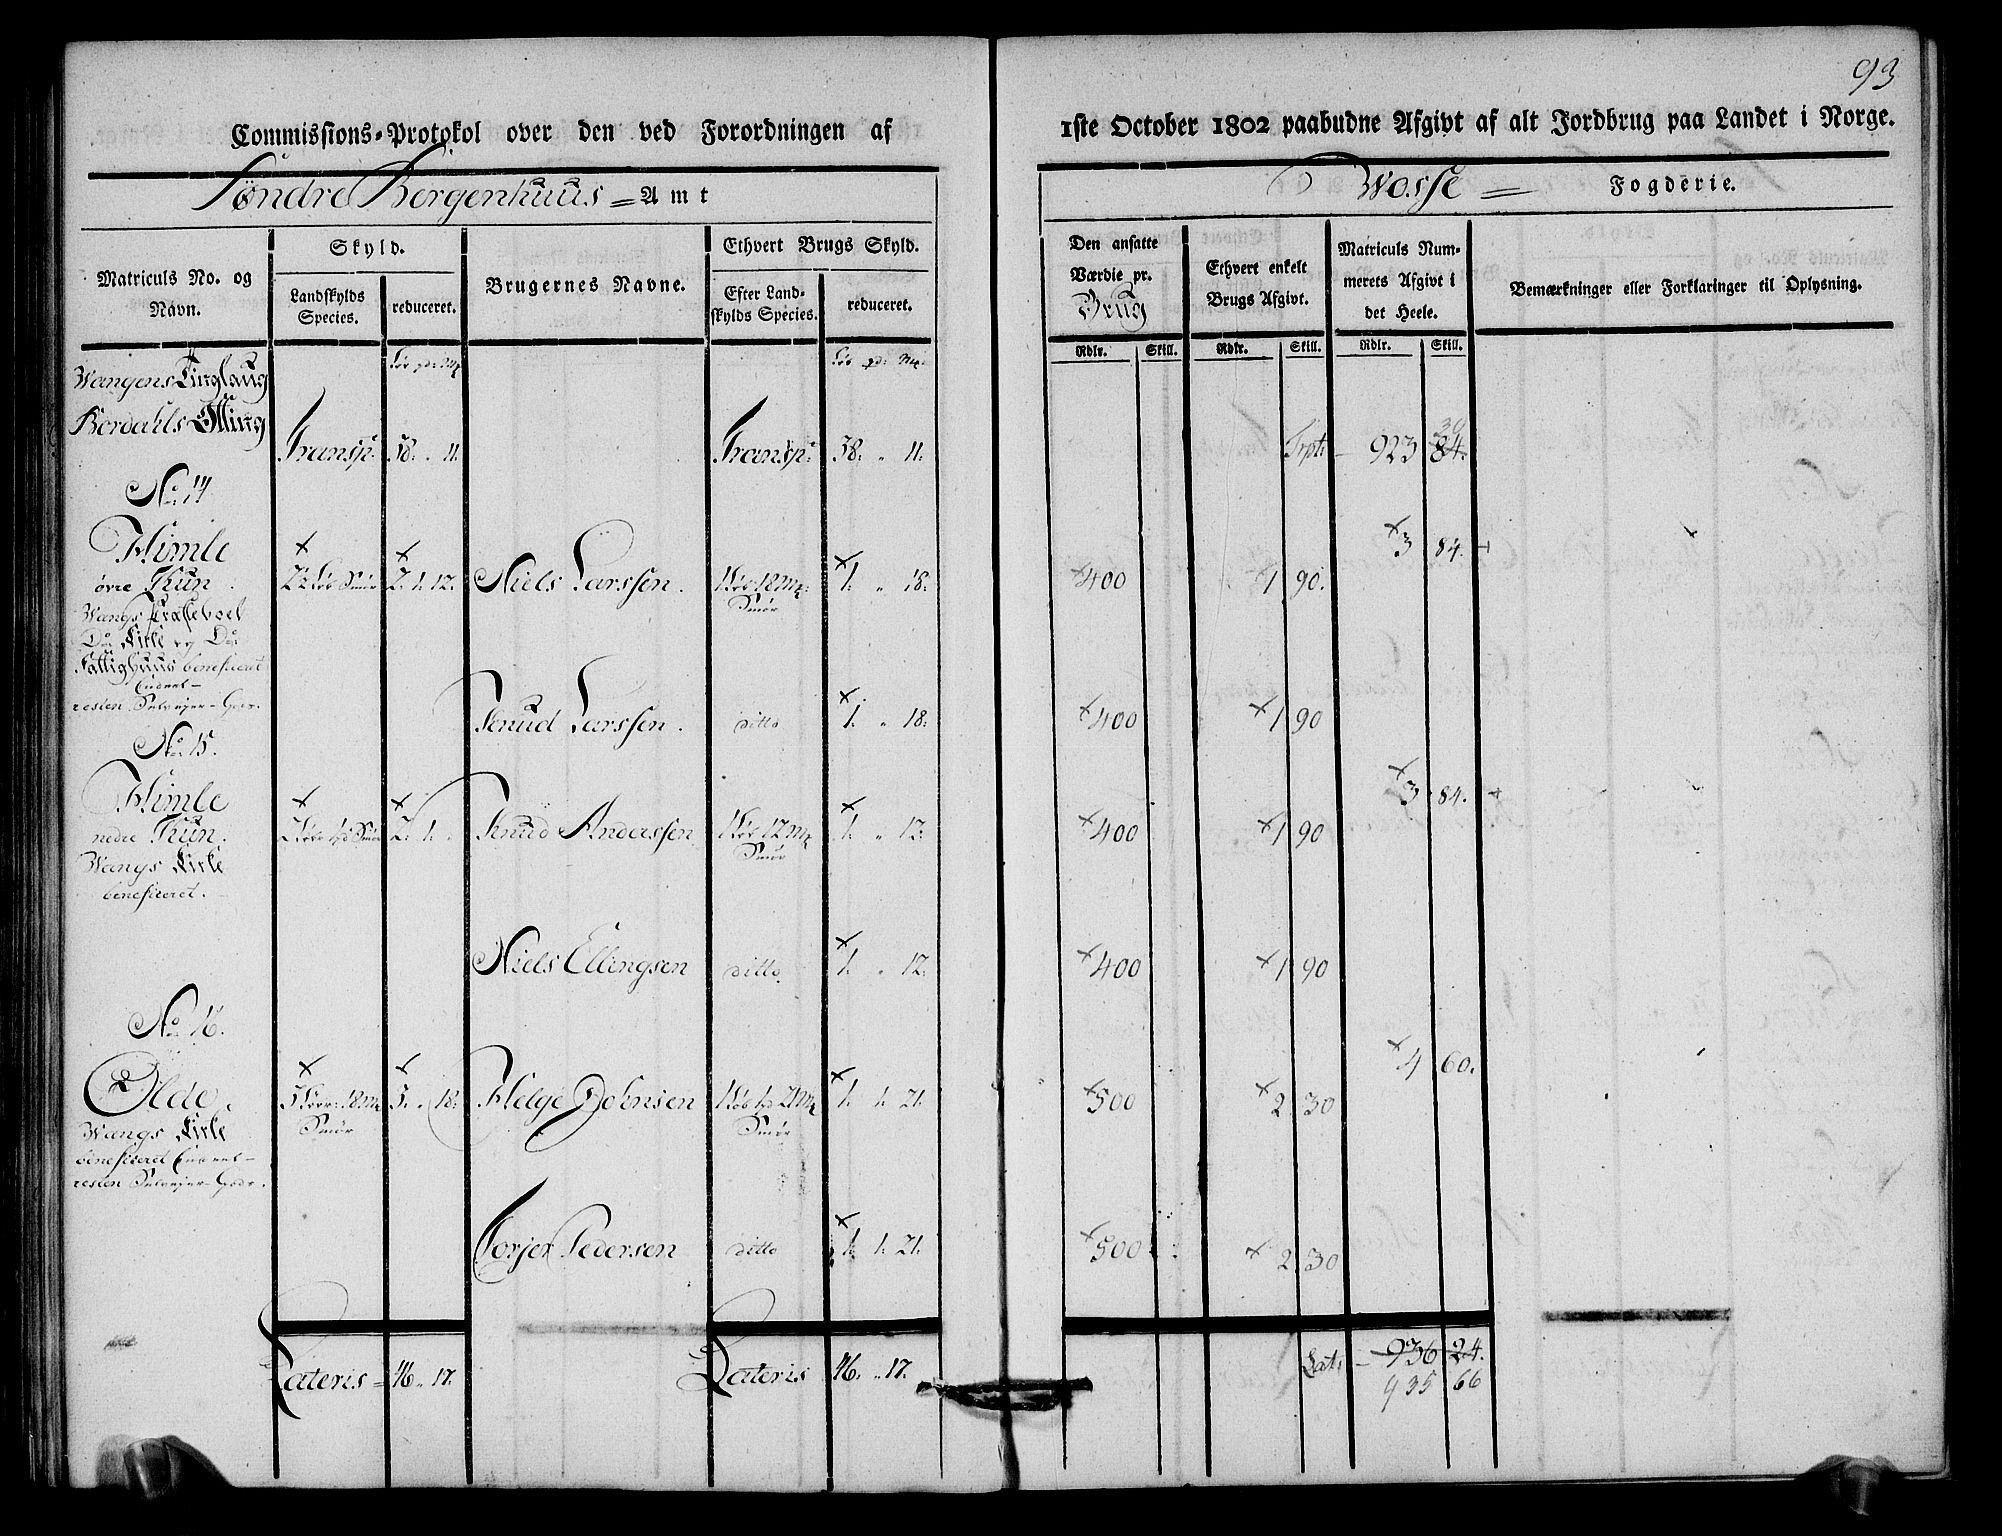 93
Commissions-Protokol over den ved Forordningen af 1ste October 1802 paabudne Afgivt af alt Jordbrug paa Landet i Norge.
Søndre Bergenhuus = Amt
Wosse = Fogderie.
Matriculs No. og Navn.
Skyld.
Landskylds Species.
reduceret.
Brugernes Navne.
Ethvert Brugs Skyld.
Efter Landskylds Species.
reduceret.
Den ansatte Værdie pr. Brug
Ethvert enkelt Brugs Afgivt.
Matriculs Nummerets Afgivt i det Heele.
Bemærkninger eller Forklaringer til Oplysning.
Rdlr. Skill. Rdlr. Skill. Rdlr. Skill.
Wangens Tinglaug
Bordahls Otting
Transp: 38: " 11: Transp: 38: " 11: Trpt: - 923 84. 30
No: 14
Himle
øvre Thun.
2½ Løb Smør 2. 1. 12. Niels Larssen. 1 Løb 18 mk: Smør 1. " 18: 400 1 90. 3 84.
Wangs Præsteboel
Do: Kirke og Do:
Fattighuus beneficeret
resten Selvejer-Gods.
Knud Larssen. ditto 1. " 18: 400 1 90
No: 15.
Himle
nedre Thun.
2 Løb 1 pd Smør 2. 1. " Knud Anderssen 1 Løb 12 mk Smør 1. " 12: 400 1 90 3 84.
Wangs Kirke
beneficeret.
Niels Ellingsen ditto. 1. " 12: 400 1 90
No: 16.
Olde.
3 Løv: 18 mk Smør 3. " 18: Helge Johnsen 1 Løb 1 pd 21 mk Smør 1. 1. 21. 500 2 30 4 60.
Wangs Kirke
beneficeret
resten Selvejer-Gods.
Torjer Pedersen ditto 1. 1. 21. 500 2 30
Lateris = 46 " 17. Lateris 46. " 17. Lat: - 936 24.
935 66